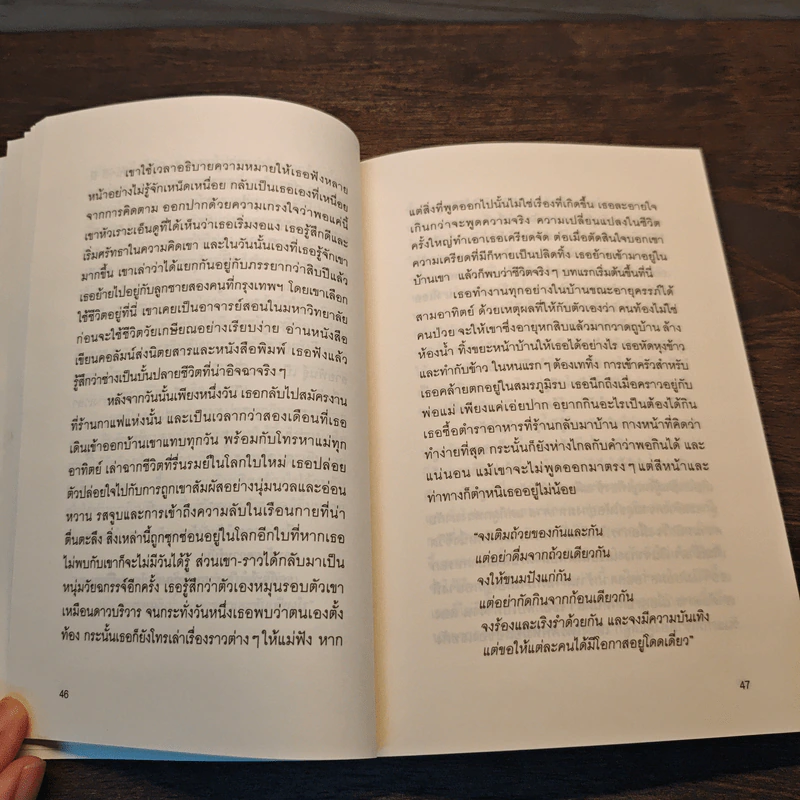 เขาใช้เวลาอธิบายความหมายให้เธอฟังหลาย
หน้าอย่างไม่รู้จักเหน็ดเหนื่อย กลับเป็นเธอเองที่เหนื่อย
จากการติดตาม ออกปากด้วยความเกรงใจว่าพอแค่นี้
เขาหัวเราะเอ็นดูที่ได้เห็นว่าเธอเริ่มงอแง เธอรู้สึกดีและ
เริ่มศรัทธาในความคิดเขา และในวันนั้นเองที่เธอรู้จักเขา
มากขึ้น เขาเล่าว่าได้แยกกันอยู่กับภรรยากว่าสิบปีแล้ว
เธอย้ายไปอยู่กับลูกชายสองคนที่กรุงเทพฯ โดยเขาเลือก
ใช้ชีวิตอยู่ที่นี่ เขาเคยเป็นอาจารย์สอนในมหาวิทยาลัย
ก่อนจะใช้ชีวิตวัยเกษียณอย่างเรียบง่าย อ่านหนังสือ
เขียนคอลัมน์ส่งนิตยสารและหนังสือพิมพ์ เธอฟังแล้ว
รู้สึกว่าช่างเป็นบั้นปลายชีวิตที่น่าอิจฉาจริงๆ
หลังจากวันนั้นเพียงหนึ่งวัน เธอกลับไปสมัครงาน
ที่ร้านกาแฟแห่งนั้น และเป็นเวลากว่าสองเดือนที่เธอ
เดินเข้าออกบ้านเขาแทบทุกวัน พร้อมกับโทรหาแม่ทุก
อาทิตย์ เล่าฉากชีวิตที่รื่นรมย์ในโลกใบใหม่ เธอปล่อย
ตัวปล่อยใจไปกับการถูกเขาสัมผัสอย่างนุ่มนวลและอ่อน
หวาน รสจูบและการเข้าถึงความลับในเรือนกายที่น่า
ตื่นตะลึง สิ่งเหล่านี้ถูกซุกซ่อนอยู่ในโลกอีกใบที่หากเธอ
ไม่พบกับเขาก็จะไม่มีวันได้รู้ ส่วนเขา-ราวได้กลับมาเป็น
หนุ่มวัยฉกรรจ์อีกครั้ง เธอรู้สึกว่าตัวเองหมุนรอบตัวเขา
เหมือนดาวบริวาร จนกระทั่งวันหนึ่งเธอพบว่าตนเองตั้ง
ท้อง กระนั้นเธอก็ยังโทรเล่าเรื่องราวต่างๆ ให้แม่ฟัง หาก
46
แต่สิ่งที่พูดออกไปนั้นไม่ใช่เรื่องที่เกิดขึ้น เธอละอายใจ
เกินกว่าจะพูดความจริง ความเปลี่ยนแปลงในชีวิต
ครั้งใหญ่ทำเอาเธอเครียดจัด ต่อเมื่อตัดสินใจบอกเขา
ความเครียดที่มีก็หายเป็นปลิดทิ้ง เธอย้ายเข้ามาอยู่ใน
บ้านเขา แล้วก็พบว่าชีวิตจริงๆ บทแรกเริ่มต้นขึ้นที่นี่
เธอทำงานทุกอย่างในบ้านขณะอายุครรภ์ได้
สามอาทิตย์ ด้วยเหตุผลที่ให้กับตัวเองว่า คนท้องไม่ใช่
คนป่วย จะให้เขาซึ่งอายุหกสิบแล้วมากวาดถูบ้าน ล้าง
ห้องน้ำ ทิ้งขยะหน้าบ้านให้เธอได้อย่างไร เธอหัดหุงข้าว
และทำกับข้าว ในหนแรกๆ ต้องเททิ้ง การเข้าครัวสำหรับ
เธอคล้ายตกอยู่ในสมรภูมิรบ เธอนึกถึงเมื่อคราวอยู่กับ
พ่อแม่ เพียงแค่เอ่ยปาก อยากกินอะไรเป็นต้องได้กิน
เธอซื้อตำราอาหารที่ร้านกลับมาบ้าน กางหน้าที่คิดว่า
ทำง่ายที่สุด กระนั้นก็ยังห่างไกลกับคำว่าพอกินได้ และ
แน่นอน แม้เขาจะไม่พูดออกมาตรงๆ แต่สีหน้าและ
ท่าทางก็ตำหนิเธออยู่ไม่น้อย
“จงเติมถ้วยของกันและกัน
แต่อย่าดื่มจากถ้วยเดียวกัน
จงให้ขนมปังแก่กัน
แต่อย่ากัดกินจากก้อนเดียวกัน
จงร้องและเริงรำด้วยกัน และจงมีความบันเทิง
แต่ขอให้แต่ละคนได้มีโอกาสอยู่โดดเดี่ยว”
47